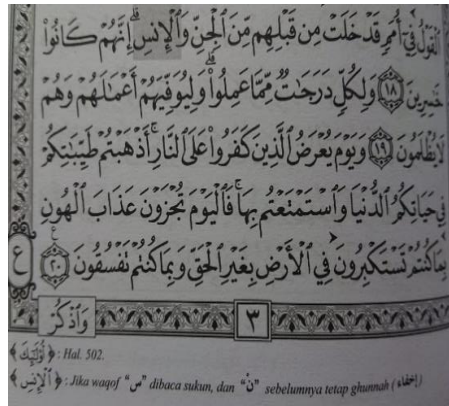 ٱلْقَوْلُ فِىٓ أُمَمٍ قَدْ خَلَتْ مِن قَبْلِهِم مِّنَ ٱلْجِنِّ وَٱلْإِنسِ ۖ إِنَّهُمْ كَانُوا۟
خَٰسِرِينَ ١٨ وَلِكُلٍّ دَرَجَٰتٌ مِّمَّا عَمِلُوا۟ ۖ وَلِيُوَفِّيَهُمْ أَعْمَٰلَهُمْ وَهُمْ
لَا يُظْلَمُونَ ١٩ وَيَوْمَ يُعْرَضُ ٱلَّذِينَ كَفَرُوا۟ عَلَى ٱلنَّارِ أَذْهَبْتُمْ طَيِّبَٰتِكُمْ
فِى حَيَاتِكُمُ ٱلدُّنْيَا وَٱسْتَمْتَعْتُم بِهَا فَٱلْيَوْمَ تُجْزَوْنَ عَذَابَ ٱلْهُونِ
بِمَا كُنتُمْ تَسْتَكْبِرُونَ فِى ٱلْأَرْضِ بِغَيْرِ ٱلْحَقِّ وَبِمَا كُنتُمْ تَفْسُقُونَ ٢٠
ع
٣
وَٱذْكُرْ
﴿أُو۟لَٰٓئِكَ﴾ : Hal. 502.
﴿ٱلْإِنسِ﴾ : Jika waqof "س" dibaca sukun, dan "نْ" sebelumnya tetap ghunnah (إخفاء)